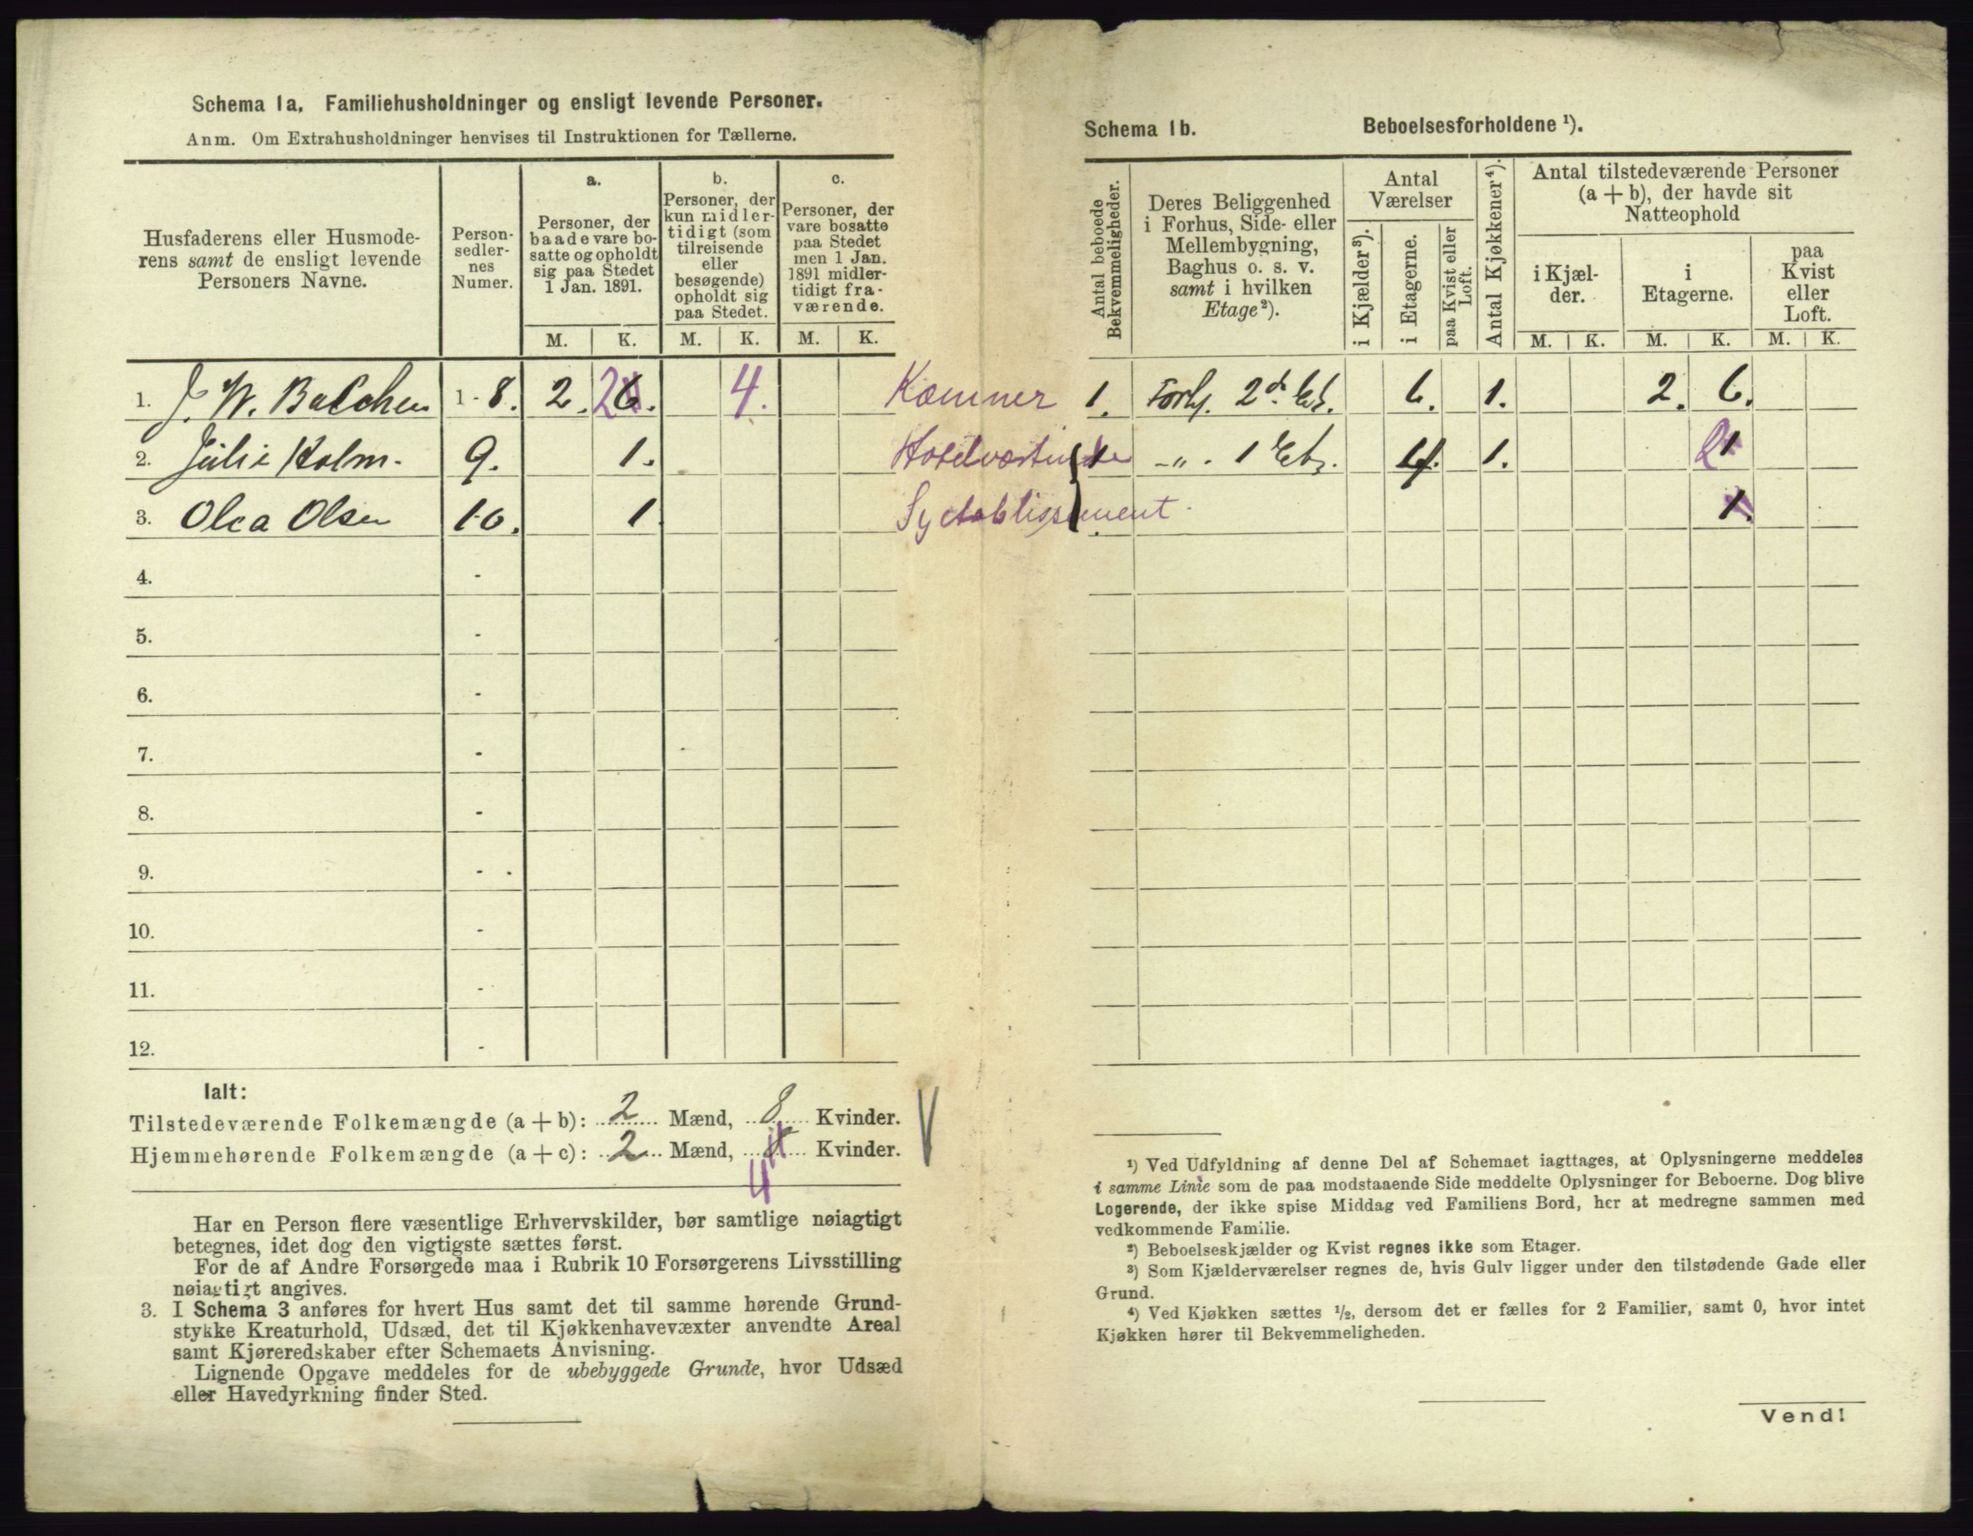 Schema 1a. Familiehusholdninger og ensligt levende Personer.
Anm. Om Extrahusholdninger henvises til Instruktionen for Tællerne.
Husfaderens eller Husmode-
rens samt de ensligt levende
Personers Navne.
Person-
sedler-
nes
Numer.
a.
Personer, der
baade vare bo-
satte og opholdt
sig paa Stedet
1 Jan. 1891.
b.
Personer, der
kun midler-
tidigt (som
tilreisende
eller
besøgende)
opholdt sig
paa Stedet.
c.
Personer, der
vare bosatte
paa Stedet
men 1 Jan.
1891 midler-
tidigt fra-
værende.
M. K. M. K. M. K.
1. J. W. Balchen 1 - 8. 2. 2 6. 4. Kæmner
2. Julie Holm. 9. 1. Hotelværtinde
3. Olea Olsen 10. 1 Syetablissement
4. -
5. -
6. -
7. -
8. -
9. -
10. -
11. -
12. -
Ialt:
Tilstedeværende Folkemængde (a + b): 2 Mænd, 8 Kvinder.
Hjemmehørende Folkemængde (a + c): 2 Mænd, 8 Kvinder.
4
Har en Person flere væsentlige Erhvervskilder, bør samtlige nøiagtigt
betegnes, idet dog den vigtigste sættes først.
For de af Andre Forsørgede maa i Rubrik 10 Forsørgerens Livsstilling
nøiagtigt angives.
3. I Schema 3 anføres for hvert Hus samt det til samme hørende Grund-
stykke Kreaturhold, Udsæd, det til Kjøkkenhavevæxter anvendte Areal
samt Kjøreredskaber efter Schemaets Anvisning.
Lignende Opgave meddeles for de ubebyggede Grunde, hvor Udsæd
eller Havedyrkning finder Sted.
Schema 1b. Beboelsesforholdene ¹).
Antal beboede
Bekvemmeligheder.
Deres Beliggenhed
i Forhus, Side- eller
Mellembygning,
Baghus o. s. v.
samt i hvilken
Etage ²).
Antal
Værelser
i Kjælder ³).
i Etagerne.
paa Kvist eller
Loft.
Antal Kjøkkener ⁴).
Antal tilstedeværende Personer
(a + b), der havde sit
Natteophold
i Kjæl-
der.
i
Etagerne.
paa
Kvist
eller
Loft.
M. K. M. K. M. K.
1. Forh. 2d. Et. 6. 1. 2. 6.
1 - „ - 1 Et. 4. 1. 2
1.
¹) Ved Udfyldning af denne Del af Schemaet iagttages, at Oplysningerne meddeles
i samme Linie som de paa modstaaende Side meddelte Oplysninger for Beboerne. Dog blive
Logerende, der ikke spise Middag ved Familiens Bord, her at medregne sammen med
vedkommende Familie.
²) Beboelseskjælder og Kvist regnes ikke som Etager.
³) Som Kjælderværelser regnes de, hvis Gulv ligger under den tilstødende Gade eller
Grund.
⁴) Ved Kjøkken sættes ½, dersom det er fælles for 2 Familier, samt 0, hvor intet
Kjøkken hører til Bekvemmeligheden.
Vend!